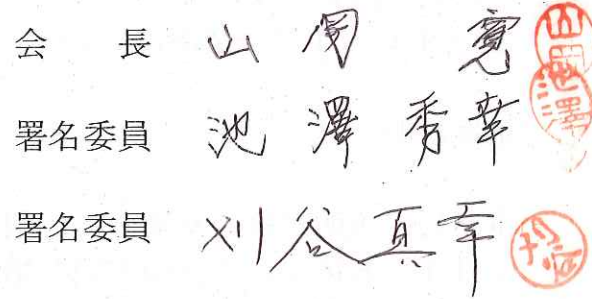 会長 山岡 寛 山岡
署名委員 池澤秀幸 池澤
署名委員 刈谷真幸 刈谷